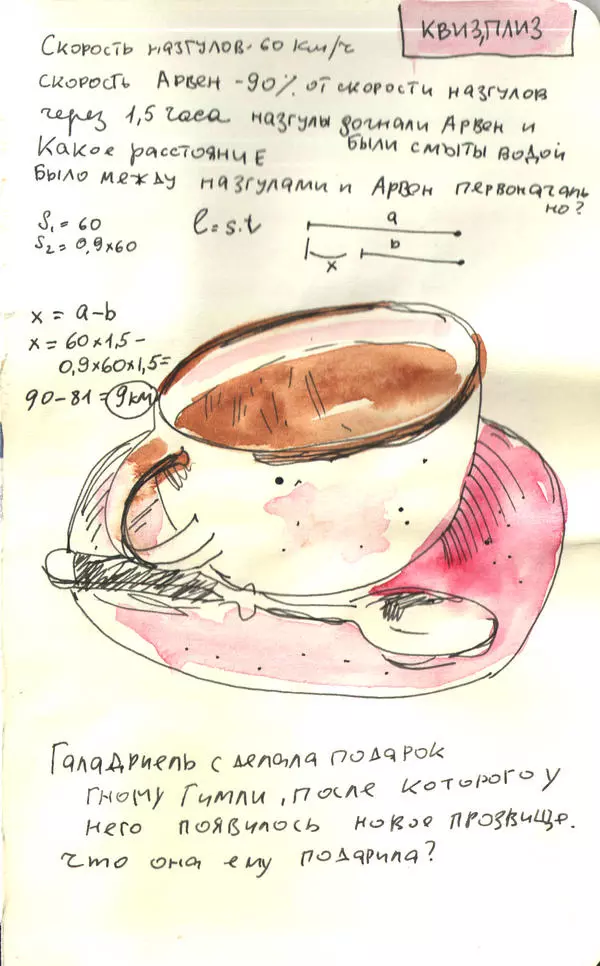 КВИЗ,ПЛИЗ
Скорость назгулов - 60 км/ч
скорость Арвен - 90% от скорости назгулов
через 1,5 часа назгулы догнали Арвен и
были смыты водой
Какое расстояние
было между назгулами и Арвен первоначаль
но?
S₁ = 60
S₂ = 0,9×60
l = s.t
a
b
x
x = a-b
x = 60×1,5 -
0,9×60×1,5=
90-81 = 9км
Галадриель сделала подарок
гному Гимли, после которого у
него появилось новое прозвище.
что она ему подарила?